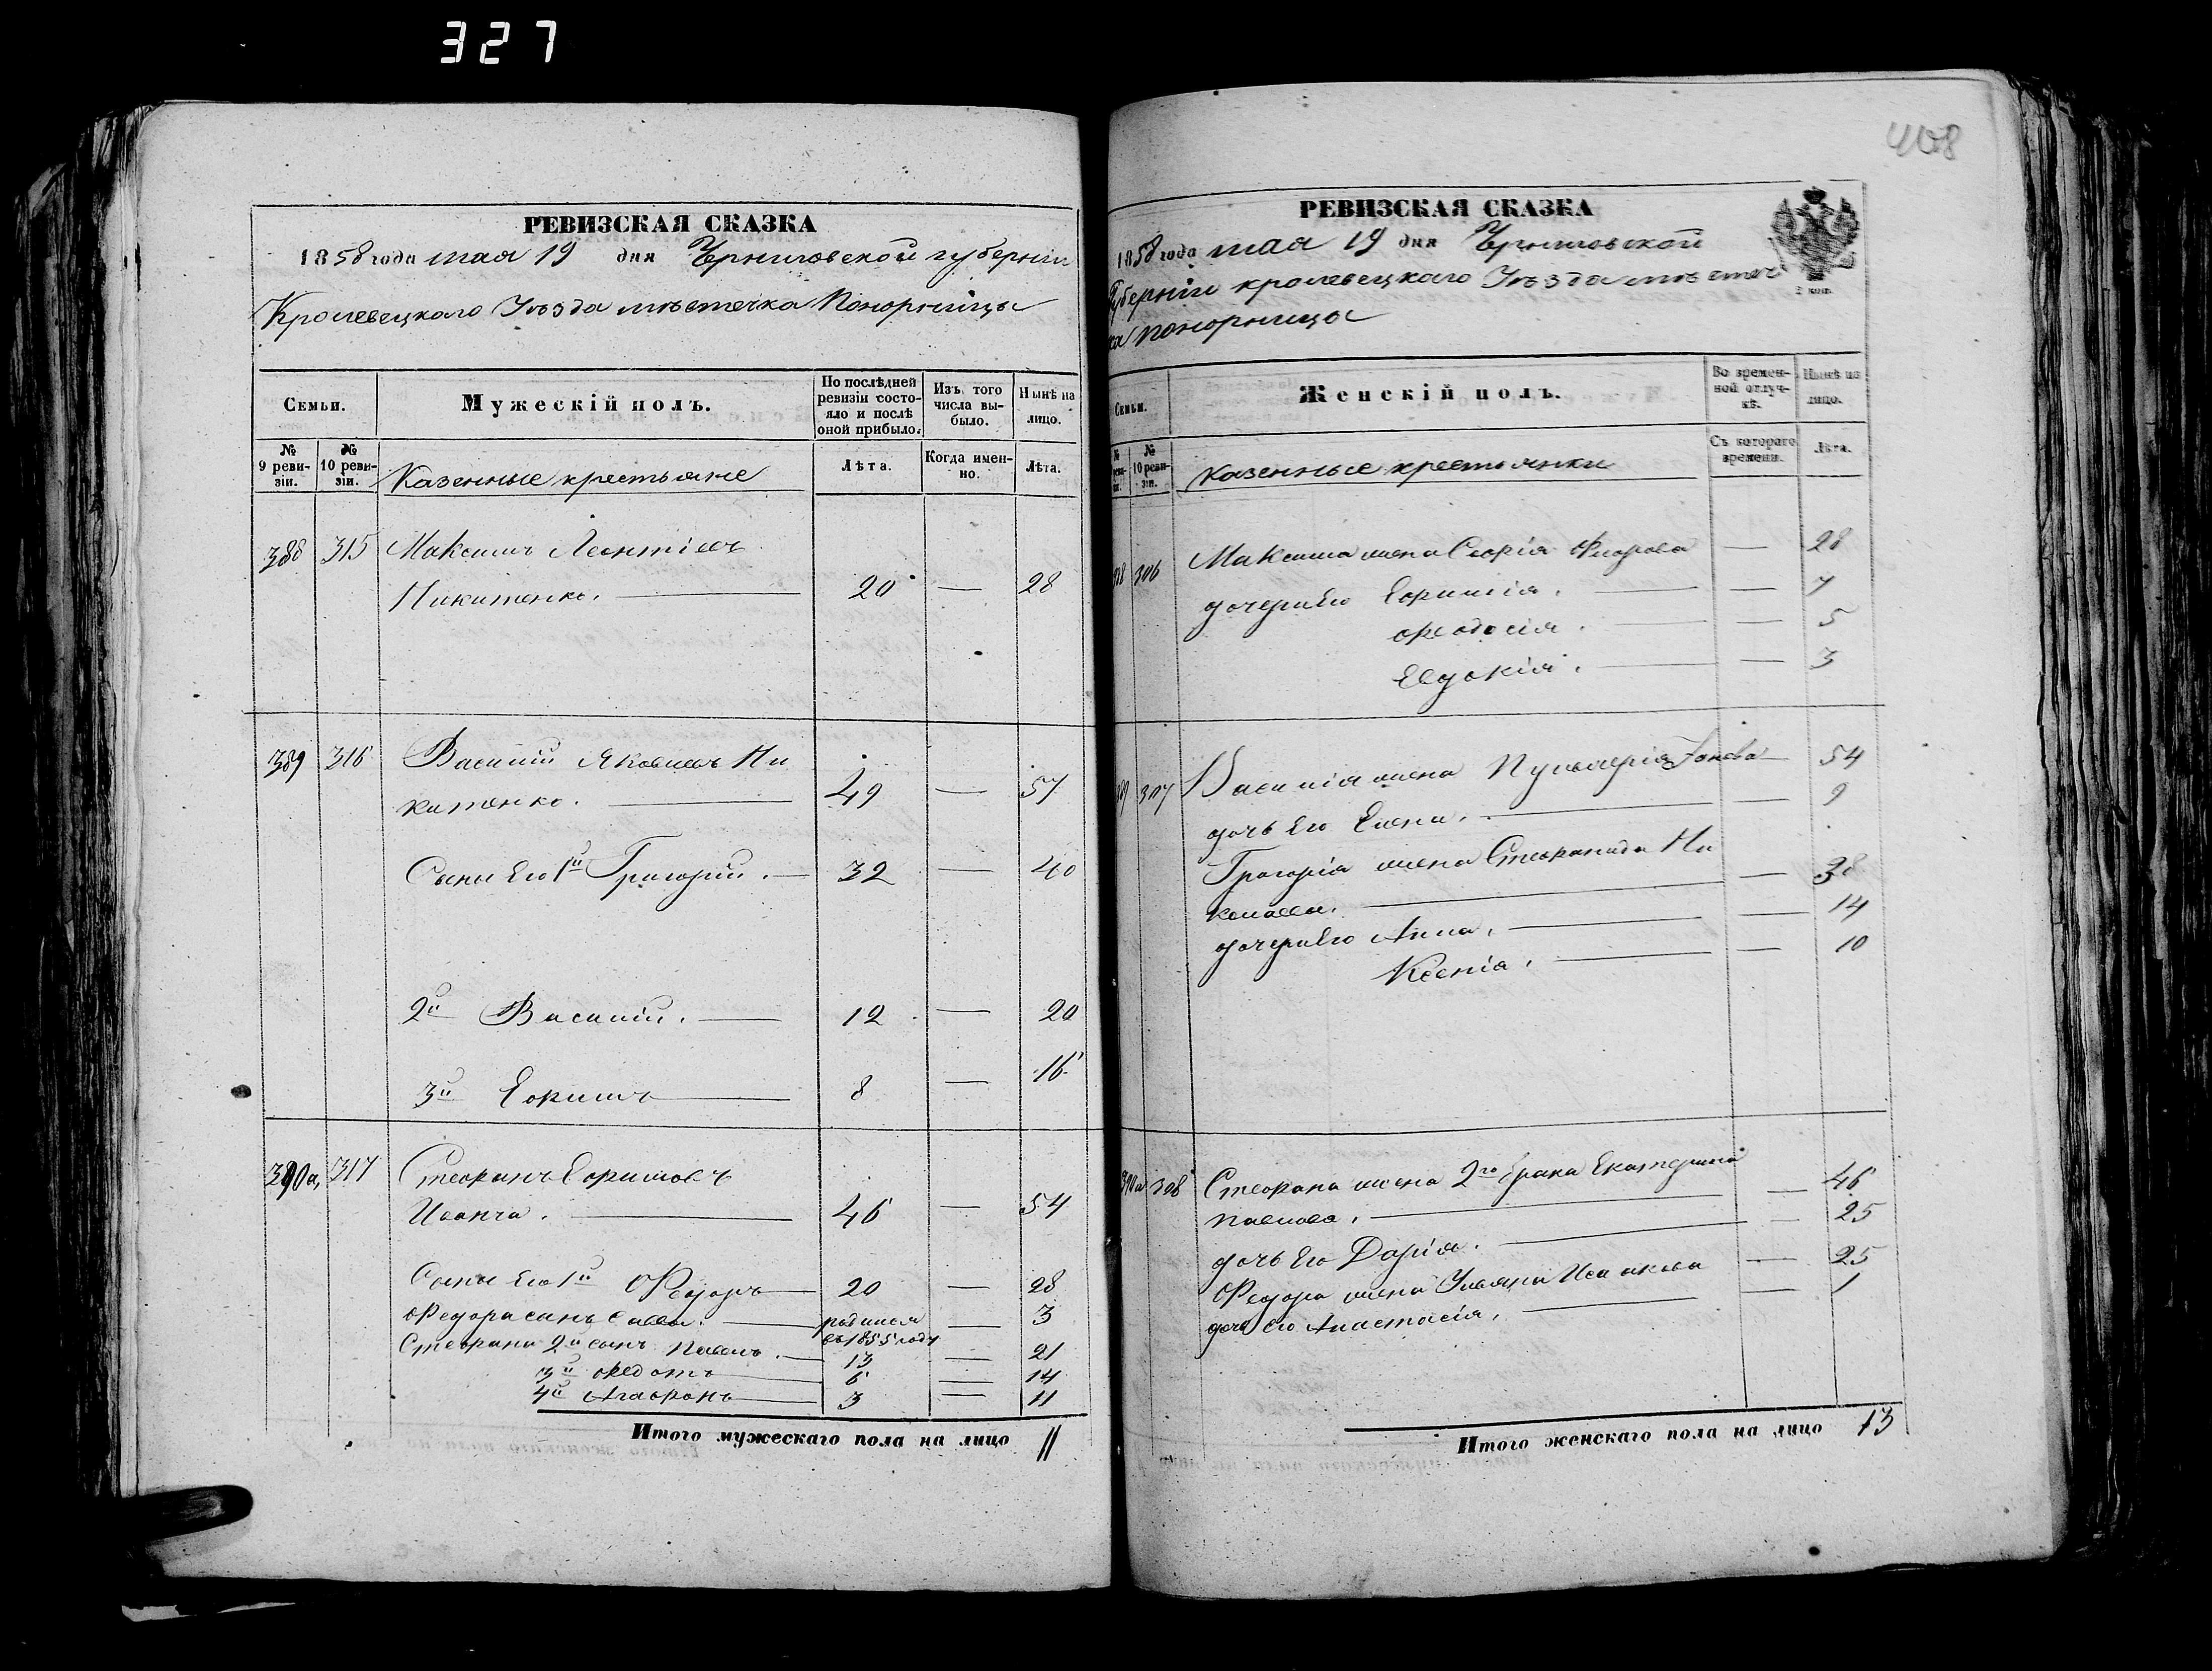 327
408
РЕВИЗСКАЯ СКАЗКА
1858 года мая 19 дня Черниговской губерніи
Кролевецкаго Уѣзда мѣстечка Понорницы
Семьи.
Мужескій полъ.
По послѣдней ревизіи состояло и послѣ оной прибыло.
Изъ того числа выбыло.
Нынѣ на лицо.
№ 9 ревизіи.
№ 10 ревизіи.
Казенные крестьяне
Лѣта.
Когда именно.
Лѣта.
388 315 Максимъ Леонтіевъ
Никитенко. 20 — 28
389 316 Василій Яковлевъ Ни
китенко. 49 — 57
Сыны Его 1й Григорій. 32 — 40
2й Василій. 12 — 20
3й Ефимъ 8 — 16
390а, 317 Стефанъ Ефимовъ
Иванча. 46 — 54
Сыны Его 1й Федоръ 20 — 28
Федора сынъ Савва. родился въ 1855 году — 3
Стефана 2й сынъ Павелъ. 13 — 21
3й Федотъ 6 — 14
4й Агафонъ 3 — 11
Итого мужескаго пола на лицо 11
РЕВИЗСКАЯ СКАЗКА
1858 года мая 19 дня Черниговской
Губерніи кролевецкаго Уѣзда мѣстеч
ка Понорницы
2 коп.
Семьи.
Женскій полъ.
Во временной отлучкѣ.
Нынѣ на лицо.
№ 10 ревизіи.
Казенные крестьянки
Съ котораго времени.
Лѣта.
306 Максима жена Софія Флорова — 28
дочери Его Евфимія. — 7
Феодосія. — 5
Евдокія. — 3
307 Василія жена Пульхерія Іонова — 54
дочь Его Елена. — 9
Григорія жена Стефанида Ни
колаева. — 38
дочери Его Анна. — 14
Ксенія. — 10
390а 308 Стефана жена 2го брака Екатерина
Павлова. — 46
дочь Его Дарія. — 25
Федора жена Ульяна Исаакова — 25
дочь Его Анастасія. — 1
Итого женскаго пола на лицо 13